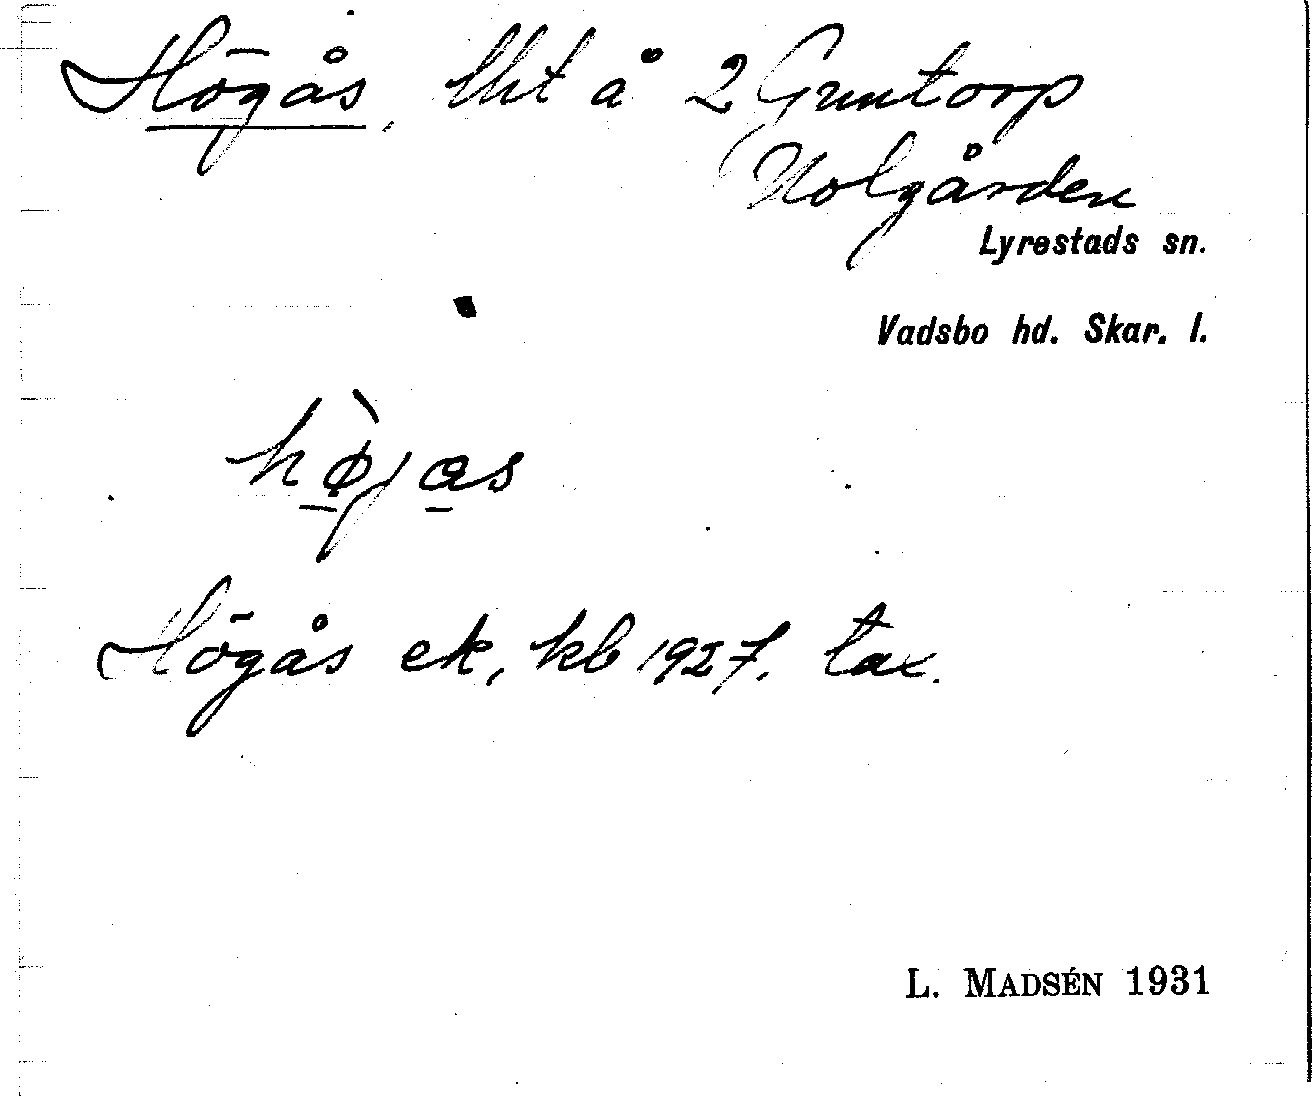 Högås, lht å 2 Guntorp
Nolgården
Lyrestads sn.
Vadsbo hd. Skar. l.
hø̀jas
Högås ek, kb 1927. tax.
L. MADSÉN 1931